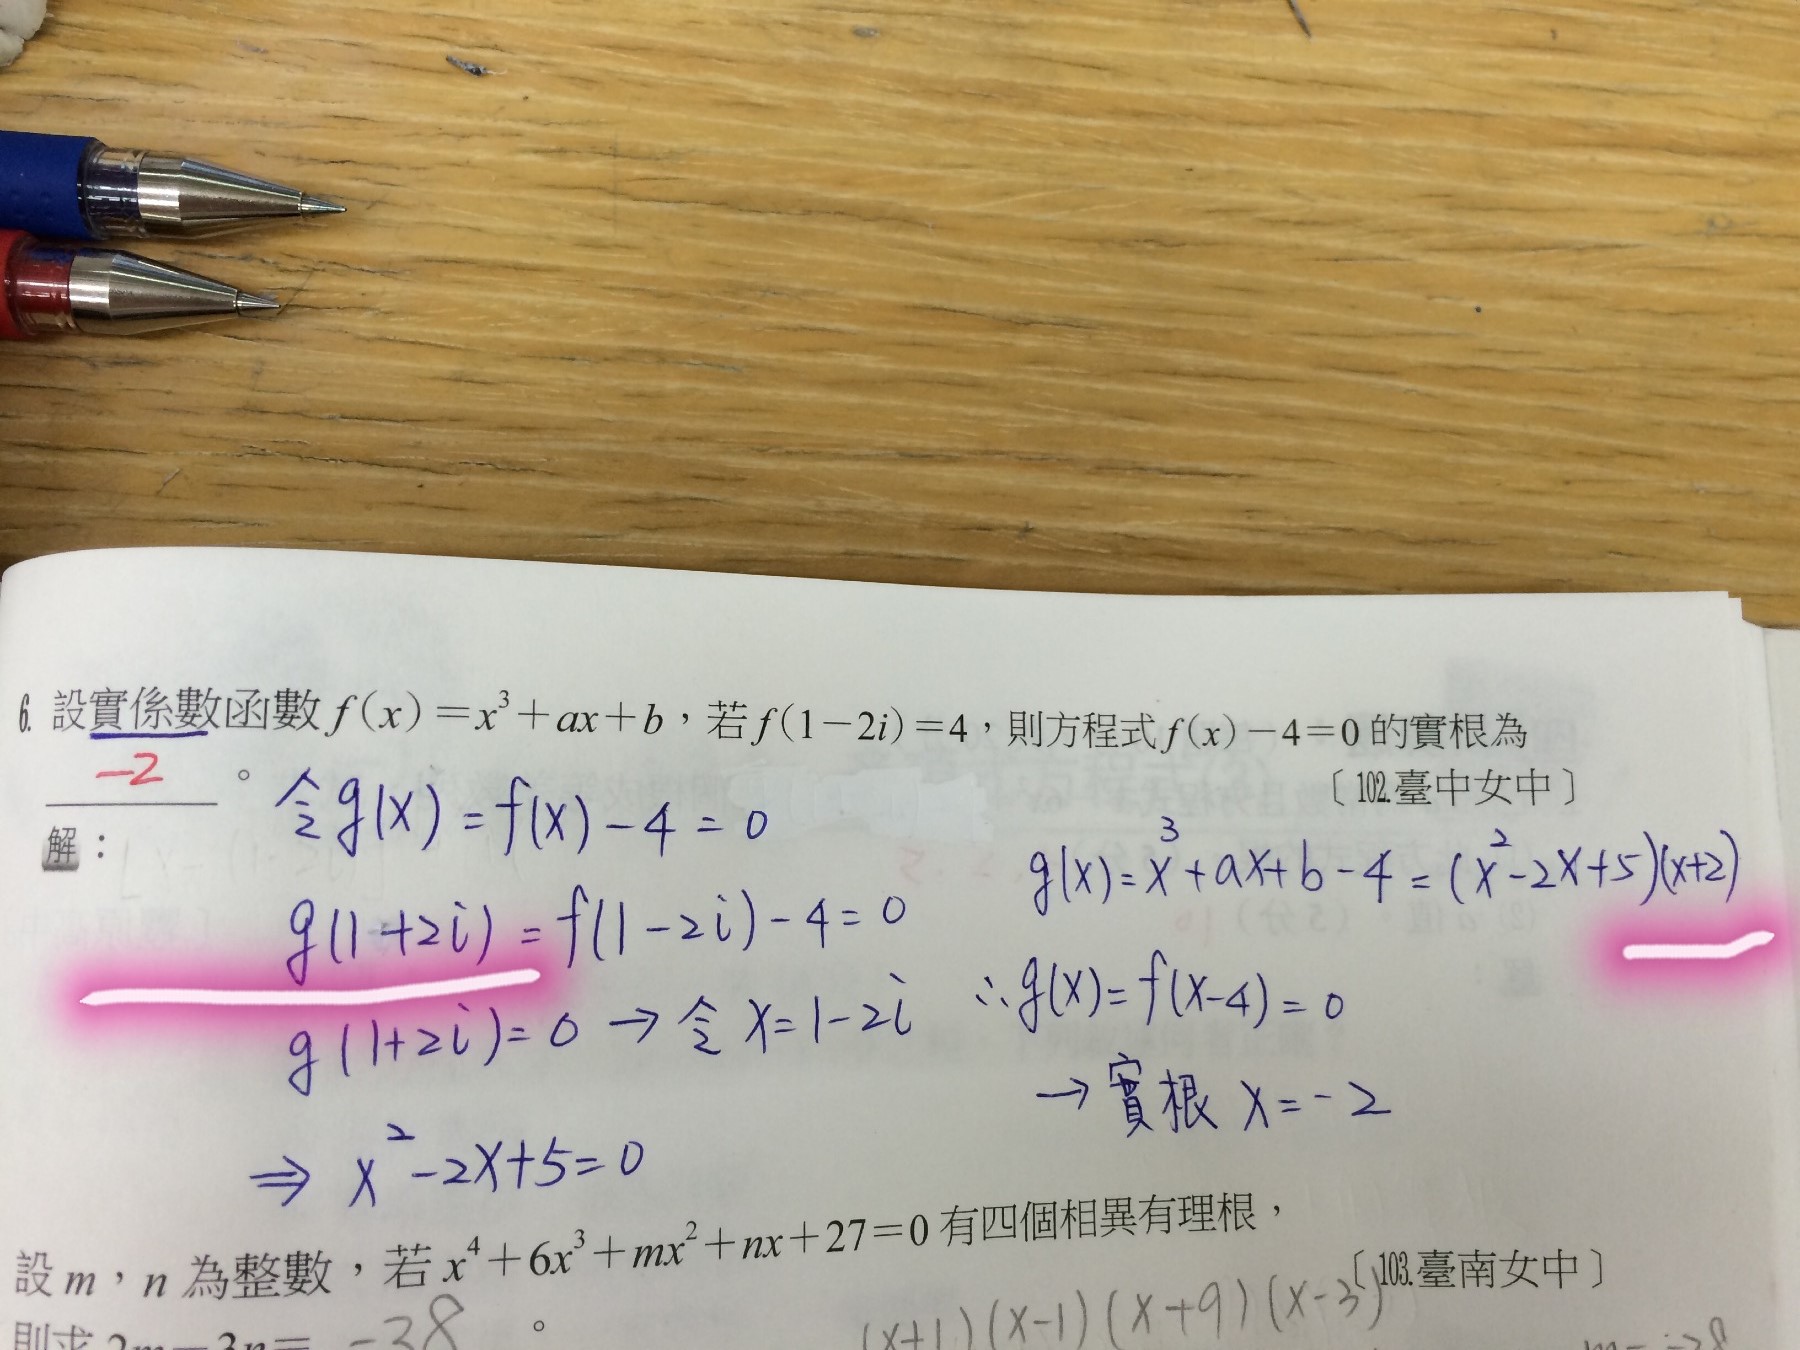 6. 設實係數函數 f(x)=x³+ax+b，若 f(1-2i)=4，則方程式 f(x)-4=0 的實根為
-2 。
〔102.臺中女中〕
解：
令g(x)=f(x)-4=0
g(1+2i)=f(1-2i)-4=0
g(1+2i)=0→令x=1-2i
⇒ x²-2x+5=0
g(x)=x³+ax+b-4=(x²-2x+5)(x+2)
∴g(x)=f(x-4)=0
→實根 x=-2
設 m，n 為整數，若 x⁴+6x³+mx²+nx+27=0 有四個相異有理根，
〔103.臺南女中〕
則求 2m-3n= -38 。
(x+1)(x-1)(x+9)(x-3)